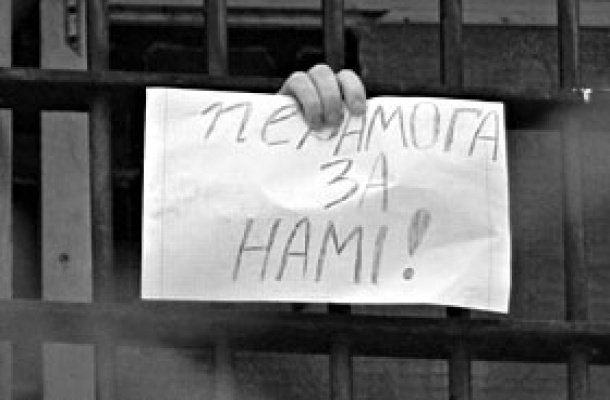 ПЕРАМОГА
ЗА
НАМІ!